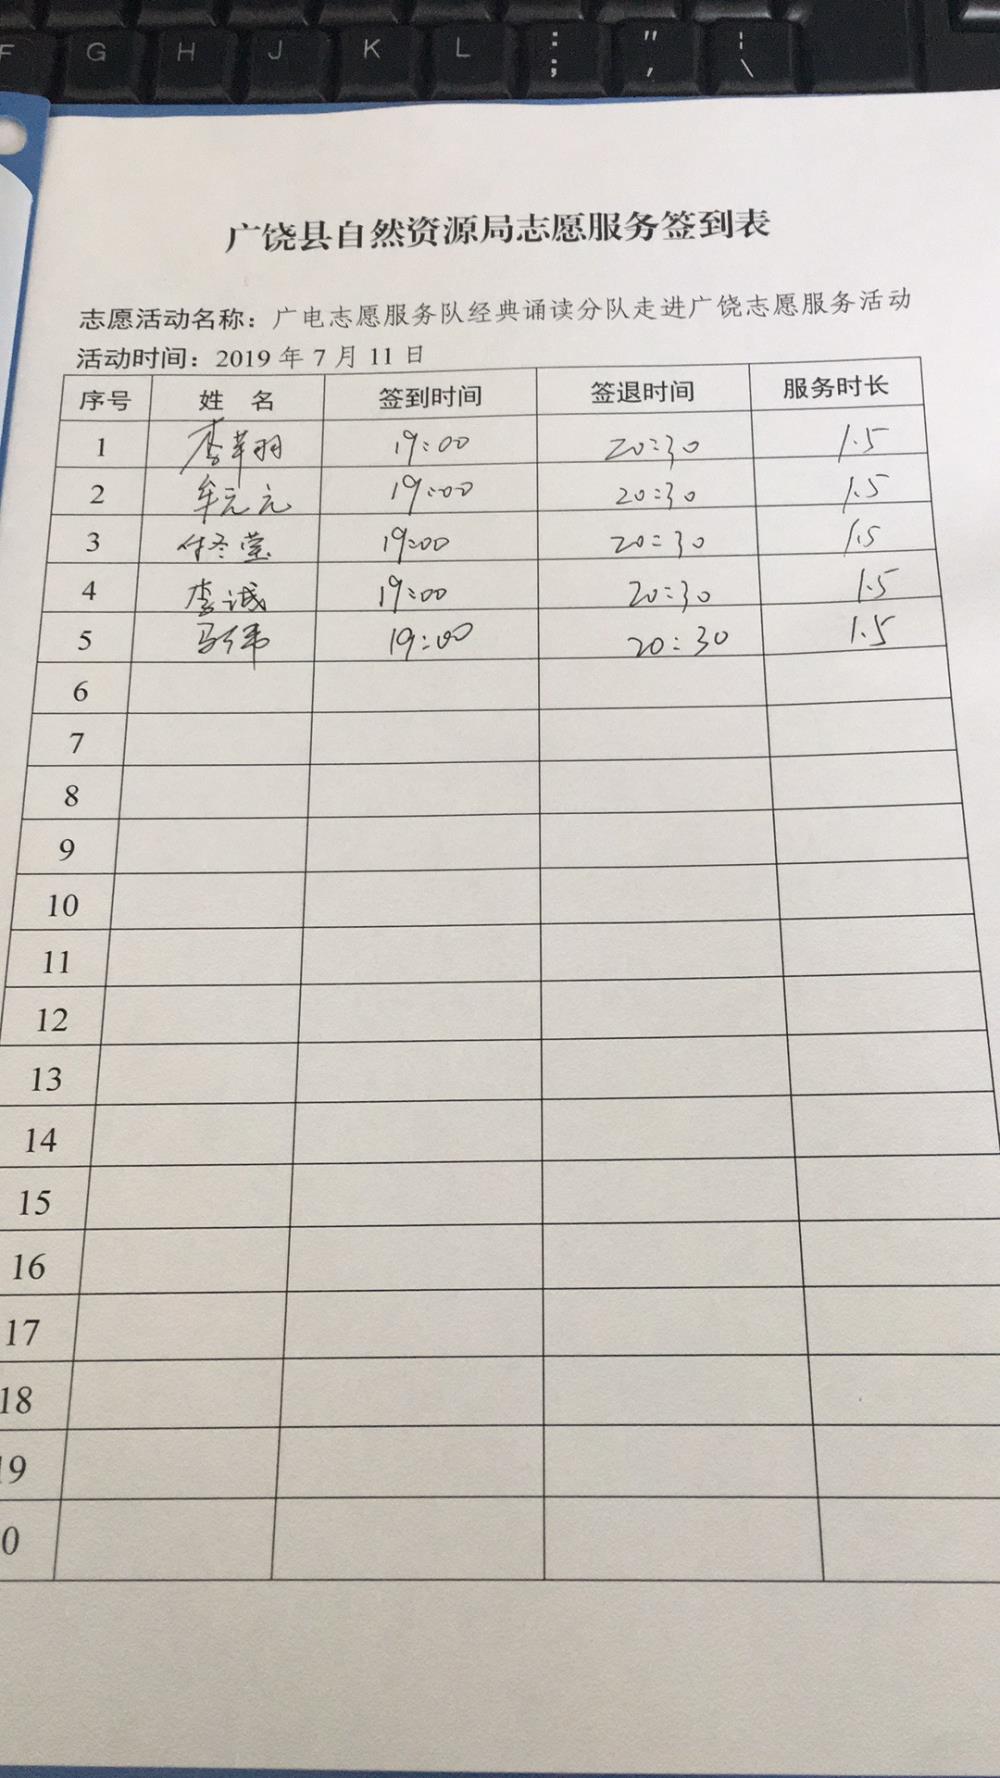 F G H J K L : ; " , ¦ \
广饶县自然资源局志愿服务签到表
志愿活动名称：广电志愿服务队经典诵读分队走进广饶志愿服务活动
活动时间：2019 年 7 月 11 日
序号 姓 名 签到时间 签退时间 服务时长
1 李苹羽 19:00 20:30 1.5
2 牟元元 19:00 20:30 1.5
3 付冬莹 19:00 20:30 1.5
4 李诚 19:00 20:30 1.5
5 马伟 19:00 20:30 1.5
6
7
8
9
10
11
12
13
14
15
16
17
18
19
0